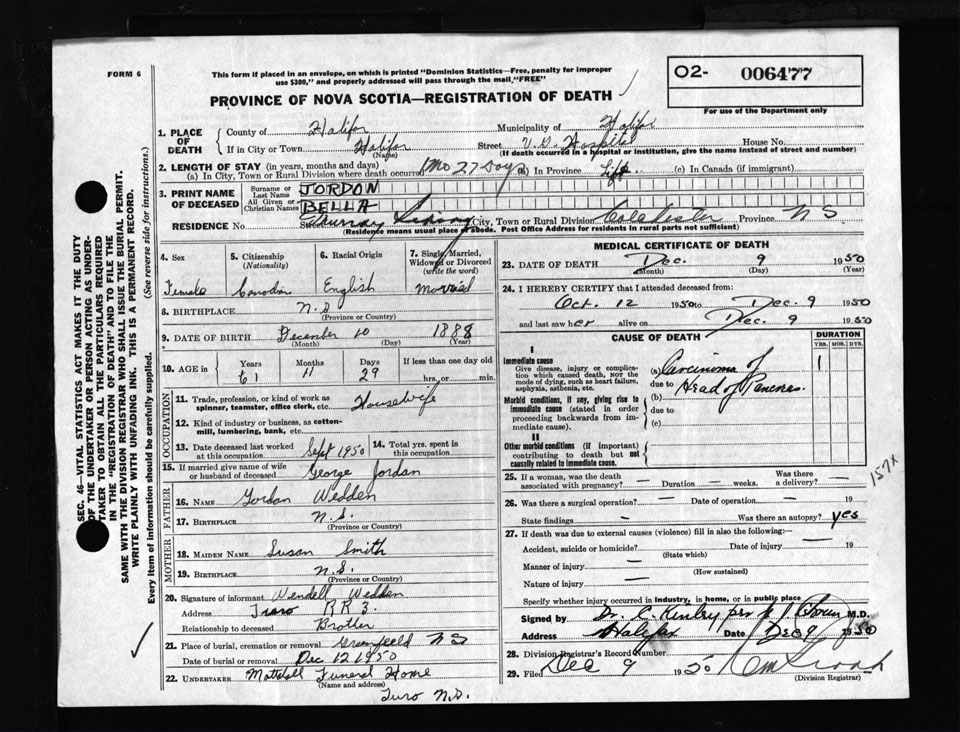 FORM 6
This form if placed in an envelope, on which is printed "Dominion Statistics—Free, penalty for improper
use $300," and properly addressed will pass through the mail, "FREE"
PROVINCE OF NOVA SCOTIA—REGISTRATION OF DEATH
O2- 006477
For use of the Department only
1. PLACE OF DEATH County of Halifax Municipality of Halifax
If in City or Town Halifax (Name) Street V.G. Hospital House No.
(If death occurred in a hospital or institution, give the name instead of street and number)
2. LENGTH OF STAY (in years, months and days)
(a) In City, Town or Rural Division where death occurred 1 Mo 27 Days (b) In Province Life. (c) In Canada (if immigrant)
3. PRINT NAME OF DECEASED Surname or Last Name JORDON
All Given or Christian Names BELLA
RESIDENCE No. Street Murray Siding City, Town or Rural Division Colchester Province N S
(Residence means usual place of abode. Post Office Address for residents in rural parts not sufficient)
4. Sex Female
5. Citizenship (Nationality) Canadian
6. Racial Origin English
7. Single, Married, Widowed or Divorced (write the word) Married
8. BIRTHPLACE N.S (Province or Country)
9. DATE OF BIRTH December 10 1888
(Month) (Day) (Year)
10. AGE in Years 61 Months 11 Days 29 If less than one day old hrs. or min.
OCCUPATION
11. Trade, profession, or kind of work as spinner, teamster, office clerk, etc. Housewife
12. Kind of industry or business, as cotton-mill, lumbering, bank, etc.
13. Date deceased last worked at this occupation Sept 1950 14. Total yrs. spent in this occupation.
15. If married give name of wife or husband of deceased George Jordan
FATHER
16. NAME Gordan Wedden
17. BIRTHPLACE N.S. (Province or Country)
MOTHER
18. MAIDEN NAME Susan Smith
19. BIRTHPLACE N.S. (Province or Country)
20. Signature of informant Wendell Wedden
Address Truro RR 3.
Relationship to deceased Brother
21. Place of burial, cremation or removal Greenfield NS
Date of burial or removal Dec 12 1950
22. UNDERTAKER Mattatall Funeral Home
(Name and address)
Turo N.S.
MEDICAL CERTIFICATE OF DEATH
23. DATE OF DEATH Dec. 9 1950
(Month) (Day) (Year)
24. I HEREBY CERTIFY that I attended deceased from:
Oct. 12 1950 to Dec. 9 1950
and last saw her alive on Dec. 9 1950
CAUSE OF DEATH
DURATION
YRS. MOS. DYS.
I
Immediate cause
Give disease, injury or complication which caused death, NOT the mode of dying, such as heart failure, asphyxia, asthenia, etc.
(a) Carcinoma of 1
due to Head of Pancreas
Morbid conditions, if any, giving rise to immediate cause (stated in order proceeding backwards from immediate cause).
(b)
due to
(c)
II
Other morbid conditions (if important) contributing to death but not causally related to immediate cause.
157x
25. If a woman, was the death associated with pregnancy? — Duration — weeks. Was there a delivery? —
26. Was there a surgical operation? — Date of operation — 19
State findings — Was there an autopsy? yes
27. If death was due to external causes (violence) fill in also the following:—
Accident, suicide or homicide? Date of injury — 19
(State which)
Manner of injury —
(How sustained)
Nature of injury —
Specify whether injury occurred in industry, in home, or in public place
Signed by Dr. C. Kinley per M.D.
Address Halifax Date Dec 9 1950
28. Division Registrar's Record Number
29. Filed Dec 9 1950
(Division Registrar)
SEC. 46—VITAL STATISTICS ACT MAKES IT THE DUTY
OF THE UNDERTAKER OR PERSON ACTING AS UNDER-
TAKER TO OBTAIN ALL THE PARTICULARS REQUIRED
IN THE "REGISTRATION OF DEATH" AND TO FILE THE
SAME WITH THE DIVISION REGISTRAR WHO SHALL ISSUE THE BURIAL PERMIT.
WRITE PLAINLY WITH UNFADING INK. THIS IS A PERMANENT RECORD.
Every item of information should be carefully supplied. (See reverse side for instructions.)